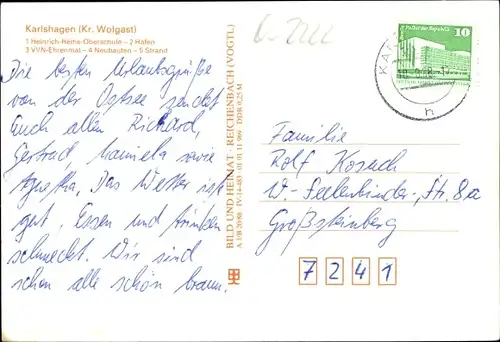 Karlshagen (Kr. Wolgast)
1 Heinrich-Heine-Oberschule – 2 Hafen
3 VVN-Ehrenmal – 4 Neubauten – 5 Strand
Die besten Urlaubsgrüße
von der Ostsee sendet
Euch allen Richard,
Gertrad, Daniela sowie
Agnetha. Das Wetter ist
gut, Essen und trinken
schmeckt. Wir sind
schon alle schön braun.
BILD UND HEIMAT · REICHENBACH (VOGTL)
01 01 11 969 DDR 0,25 M
Palast der Republik
10
h
Familie
Rolf Kosuch
W.-Seelenbinder-Str. 8a
Großsteinberg
7 2 4 1